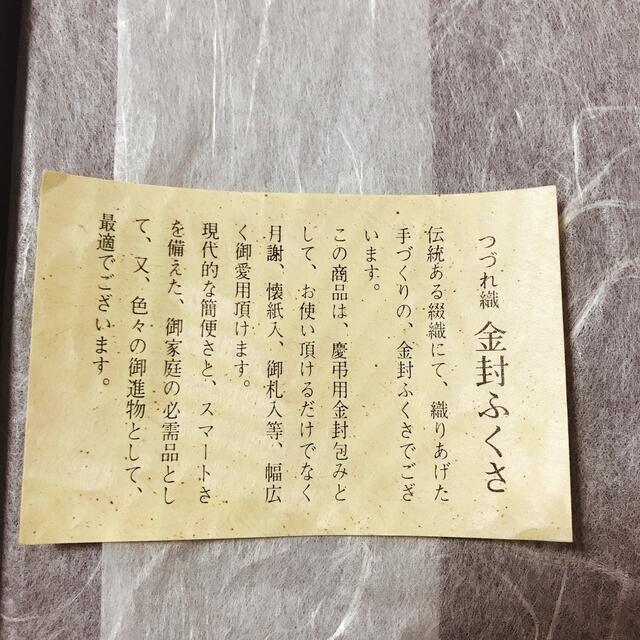 つづれ織 金封ふくさ
伝統ある綴織にて、織りあげた
手づくりの、金封ふくさでござ
います。
この商品は、慶弔用金封包みと
して、お使い頂けるだけでなく
月謝、懐紙入、御札入等、幅広
く御愛用頂けます。
現代的な簡便さと、スマートさ
を備えた、御家庭の必需品とし
て、又、色々の御進物として、
最適でございます。